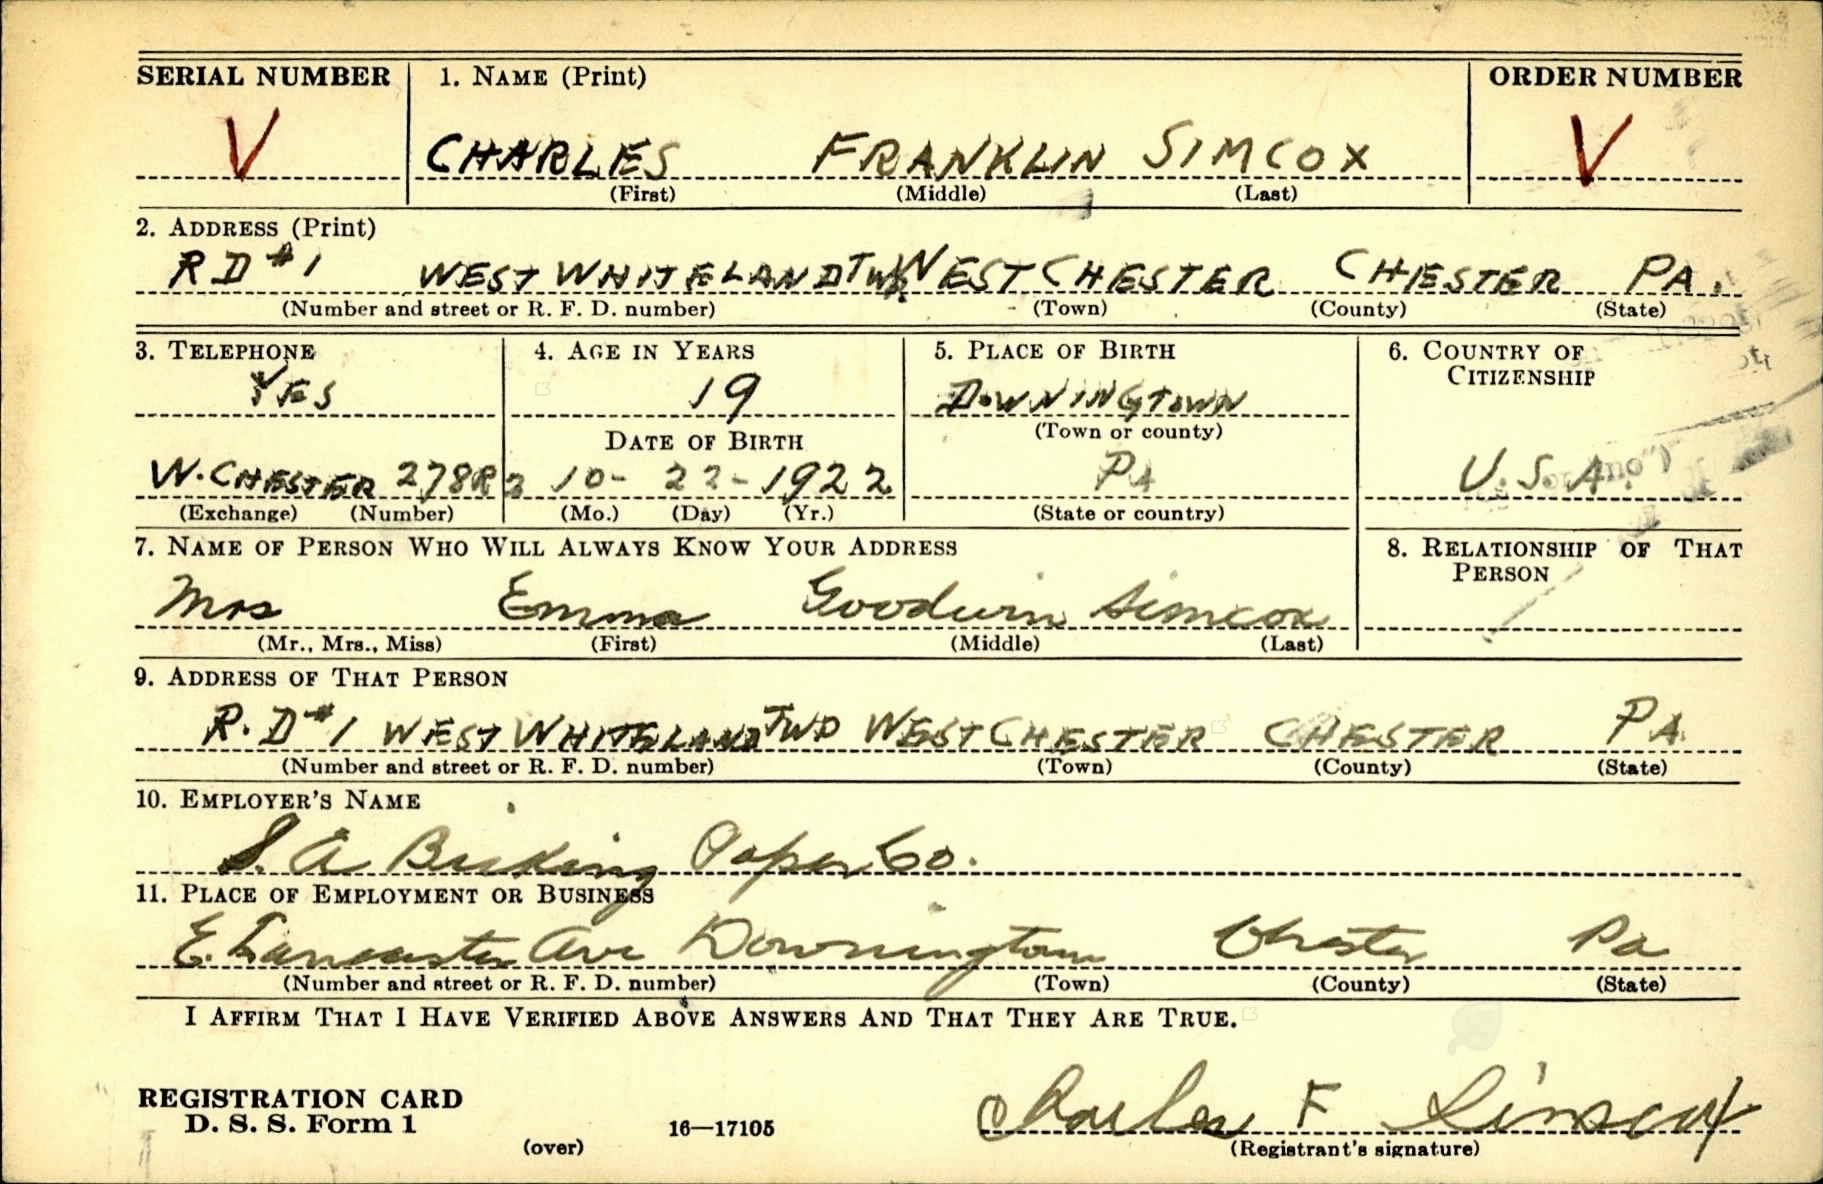 SERIAL NUMBER 1. NAME (Print) ORDER NUMBER
V CHARLES FRANKLIN SIMCOX V
(First) (Middle) (Last)
2. ADDRESS (Print)
R D #1 WEST WHITELAND TWP. WEST CHESTER CHESTER PA.
(Number and street or R. F. D. number) (Town) (County) (State)
3. TELEPHONE 4. AGE IN YEARS 5. PLACE OF BIRTH 6. COUNTRY OF
CITIZENSHIP
YES 19 DOWNINGTOWN
DATE OF BIRTH (Town or county)
W. CHESTER 278R2 10- 22- 1922 PA U.S.A.
(Exchange) (Number) (Mo.) (Day) (Yr.) (State or country)
7. NAME OF PERSON WHO WILL ALWAYS KNOW YOUR ADDRESS 8. RELATIONSHIP OF THAT
PERSON
Mrs Emma Goodwin Simcox
(Mr., Mrs., Miss) (First) (Middle) (Last)
9. ADDRESS OF THAT PERSON
R. D #1 WEST WHITELAND TWP WEST CHESTER CHESTER PA.
(Number and street or R. F. D. number) (Town) (County) (State)
10. EMPLOYER'S NAME
S. A Bicking Paper Co.
11. PLACE OF EMPLOYMENT OR BUSINESS
E. Lancaster Ave Downingtown Chester Pa
(Number and street or R. F. D. number) (Town) (County) (State)
I AFFIRM THAT I HAVE VERIFIED ABOVE ANSWERS AND THAT THEY ARE TRUE.
REGISTRATION CARD
D. S. S. Form 1 16—17105 Charles F Simcox
(over) (Registrant's signature)